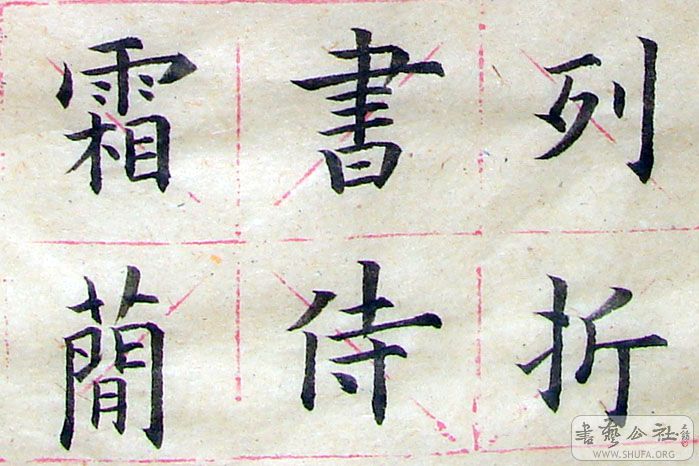 列折
書侍
霜簡
書藝公社
WWW.SHUFA.ORG